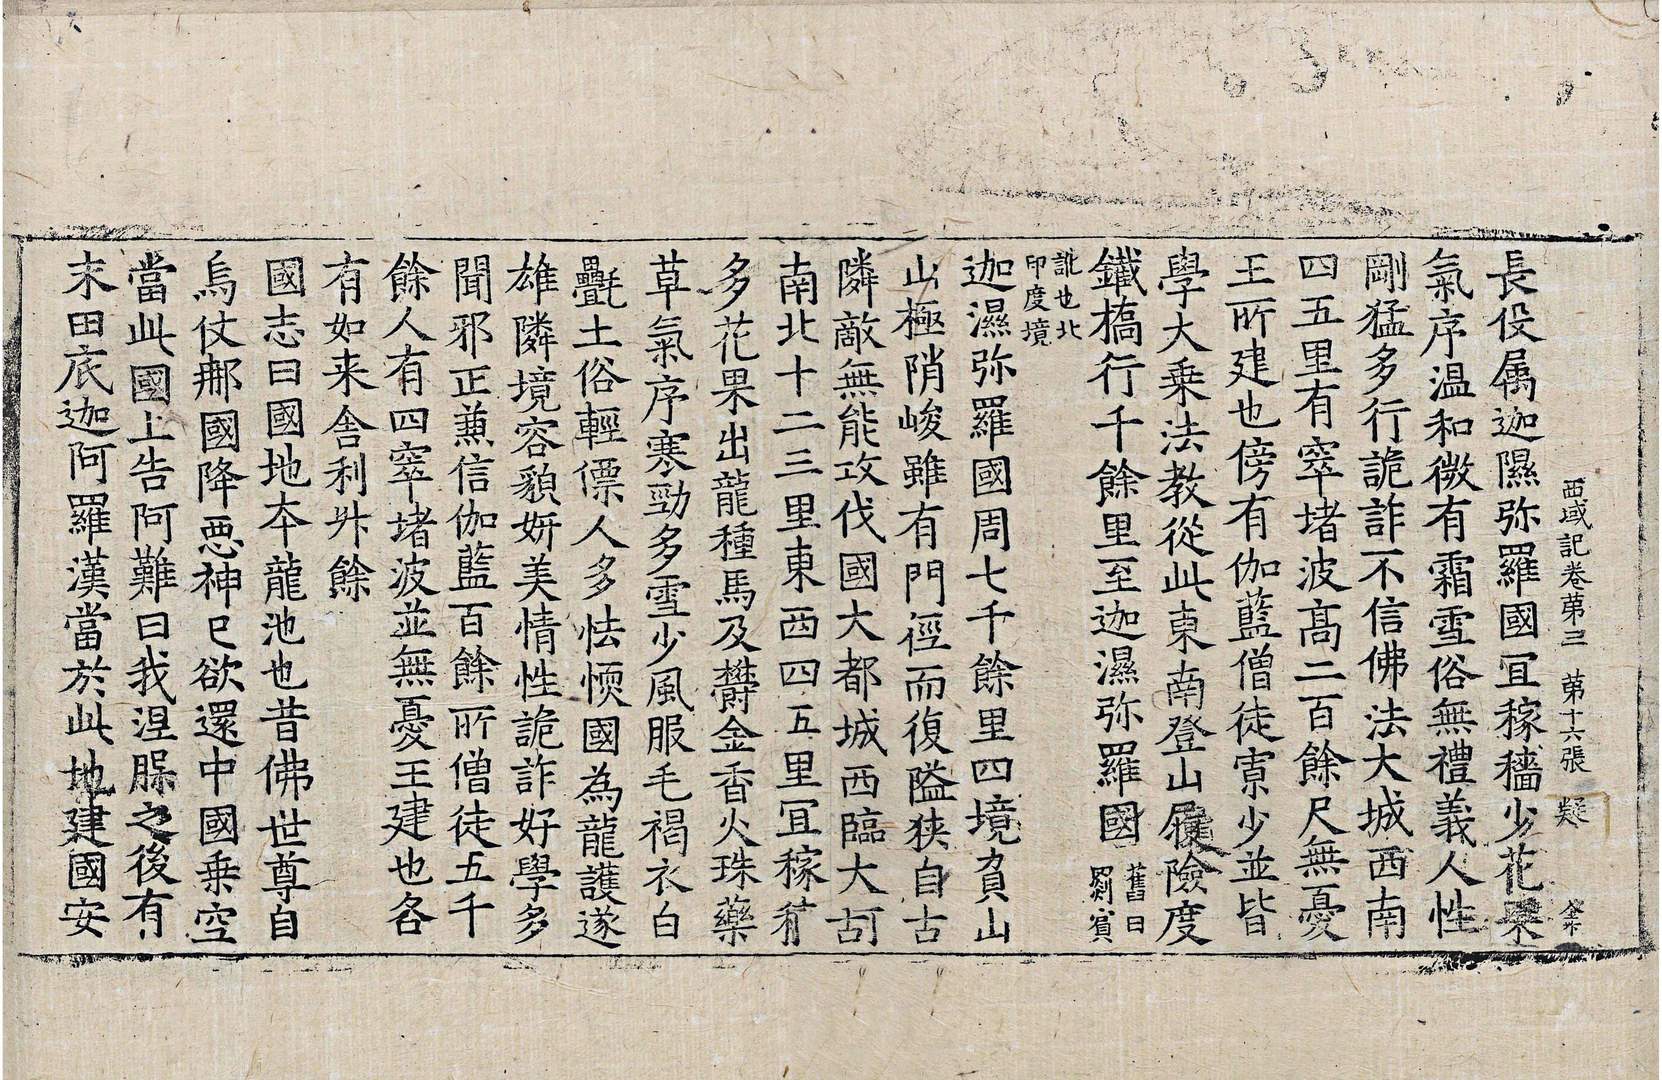 西域記卷第三 第十六張 疑
長役属迦濕弥羅國冝稼穡少花果
氣序温和微有霜雪俗無禮義人性
剛猛多行詭詐不信佛法大城西南
四五里有窣堵波髙二百餘尺無憂
王所建也傍有伽藍僧徒寡少並皆
學大乗法教從此東南登山履險度
鐵橋行千餘里至迦濕弥羅國舊曰罽賔
訛也北印度境
迦濕弥羅國周七千餘里四境負山
山極陗峻雖有門徑而復隘狹自古
隣敵無能攻伐國大都城西臨大河
南北十二三里東西四五里冝稼穡
多花果出龍種馬及欝金香火珠藥
草氣序寒勁多雪少風服毛褐衣白
㲲土俗輕僄人多怯愞國為龍護遂
雄隣境容貌妍美情性詭詐好學多
聞邪正兼信伽藍百餘所僧徒五千
餘人有四窣堵波並無憂王建也各
有如来舎利升餘
國志曰國地夲龍池也昔佛世尊自
烏仗𨙻國降𢙣神已欲還中國乗空
當此國上告阿難曰我涅槃之後有
末田底迦阿羅漢當於此地建國安